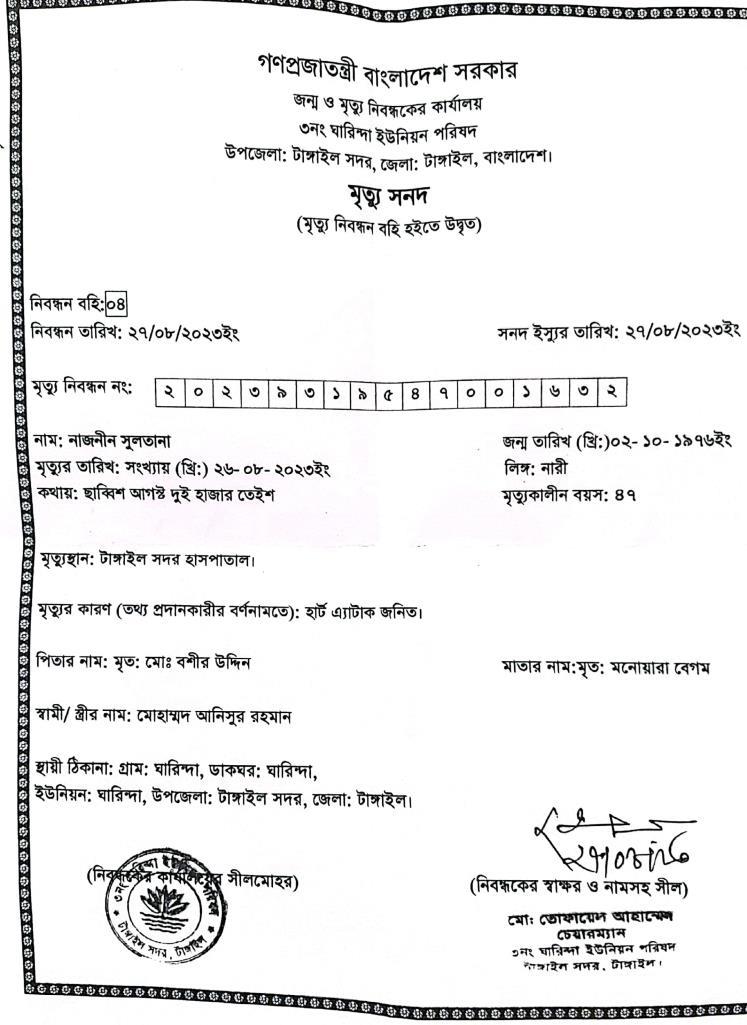 গণপ্রজাতন্ত্রী বাংলাদেশ সরকার
জন্ম ও মৃত্যু নিবন্ধকের কার্যালয়
৩নং ঘারিন্দা ইউনিয়ন পরিষদ
উপজেলা: টাঙ্গাইল সদর, জেলা: টাঙ্গাইল, বাংলাদেশ।
মৃত্যু সনদ
(মৃত্যু নিবন্ধন বহি হইতে উদ্বৃত)
নিবন্ধন বহি: ০৪
নিবন্ধন তারিখ: ২৭/০৮/২০২৩ইং
সনদ ইস্যুর তারিখ: ২৭/০৮/২০২৩ইং
মৃত্যু নিবন্ধন নং: ২ ০ ২ ৩ ৯ ৩ ১ ৯ ৫ ৪ ৭ ০ ০ ১ ৬ ৩ ২
নাম: নাজনীন সুলতানা
জন্ম তারিখ (খ্রি:)০২- ১০- ১৯৭৬ইং
মৃত্যুর তারিখ: সংখ্যায় (খ্রি:) ২৬- ০৮- ২০২৩ইং
লিঙ্গ: নারী
কথায়: ছাব্বিশ আগস্ট দুই হাজার তেইশ
মৃত্যুকালীন বয়স: ৪৭
মৃত্যুস্থান: টাঙ্গাইল সদর হাসপাতাল।
মৃত্যুর কারণ (তথ্য প্রদানকারীর বর্ণনামতে): হার্ট এ্যাটাক জনিত।
পিতার নাম: মৃত: মোঃ বশীর উদ্দিন
মাতার নাম:মৃত: মনোয়ারা বেগম
স্বামী/ স্ত্রীর নাম: মোহাম্মদ আনিসুর রহমান
স্থায়ী ঠিকানা: গ্রাম: ঘারিন্দা, ডাকঘর: ঘারিন্দা,
ইউনিয়ন: ঘারিন্দা, উপজেলা: টাঙ্গাইল সদর, জেলা: টাঙ্গাইল।
(নিবন্ধকের কার্যালয়ের সীলমোহর)
৩নং ঘারিন্দা ইউনিয়ন পরিষদ
টাঙ্গাইল সদর, টাঙ্গাইল
(নিবন্ধকের স্বাক্ষর ও নামসহ সীল)
মো: তোফায়েল আহাম্মেদ
চেয়ারম্যান
৩নং ঘারিন্দা ইউনিয়ন পরিষদ
টাঙ্গাইল সদর, টাঙ্গাইল।